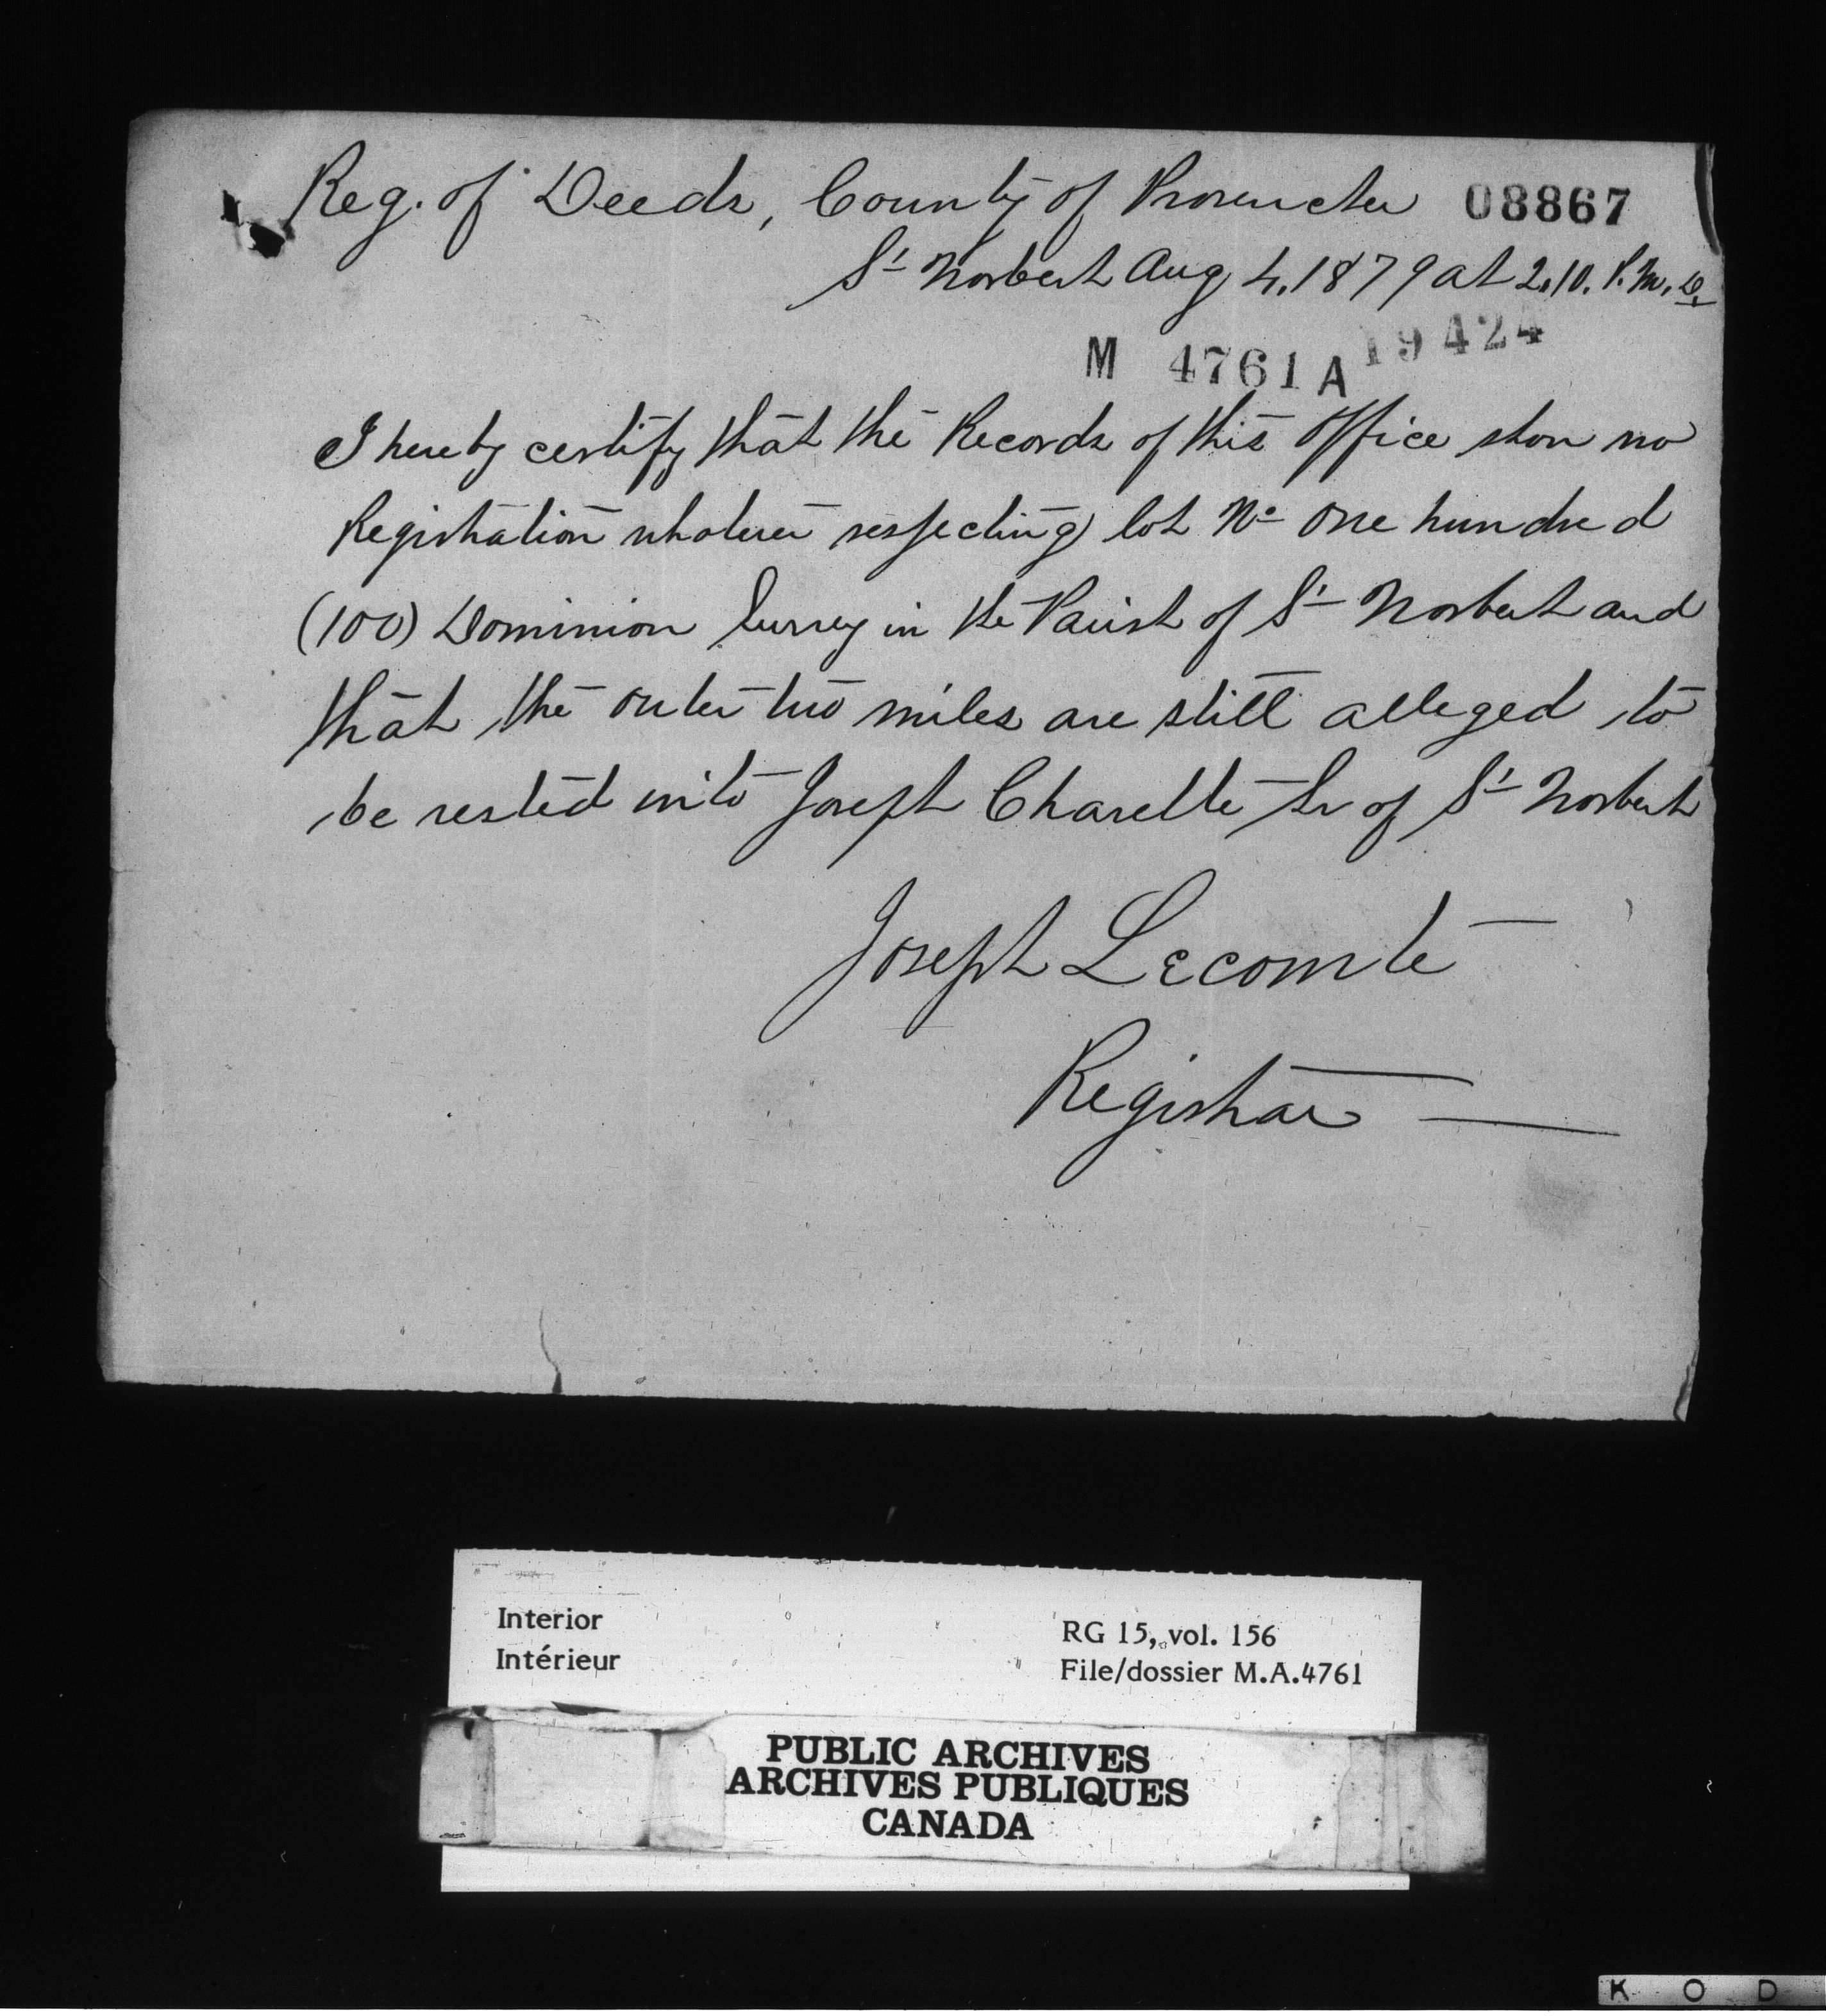 Reg. of Deeds, County of Provencher 08867
St Norbert Aug 4. 1879 at 2.10. P.M.
M 4761 A 19424
I hereby certify that the Records of this Office show no
Registration whatever respecting lot No One hundred
(100) Dominion Survey in the Parish of St Norbert and
that the outer two miles are still alleged to
be vested into Joseph Charette Sr of St Norbert
Joseph Lecomte
Registrar
Interior
Intérieur
RG 15, vol. 156
File/dossier M.A.4761
PUBLIC ARCHIVES
ARCHIVES PUBLIQUES
CANADA
K O D